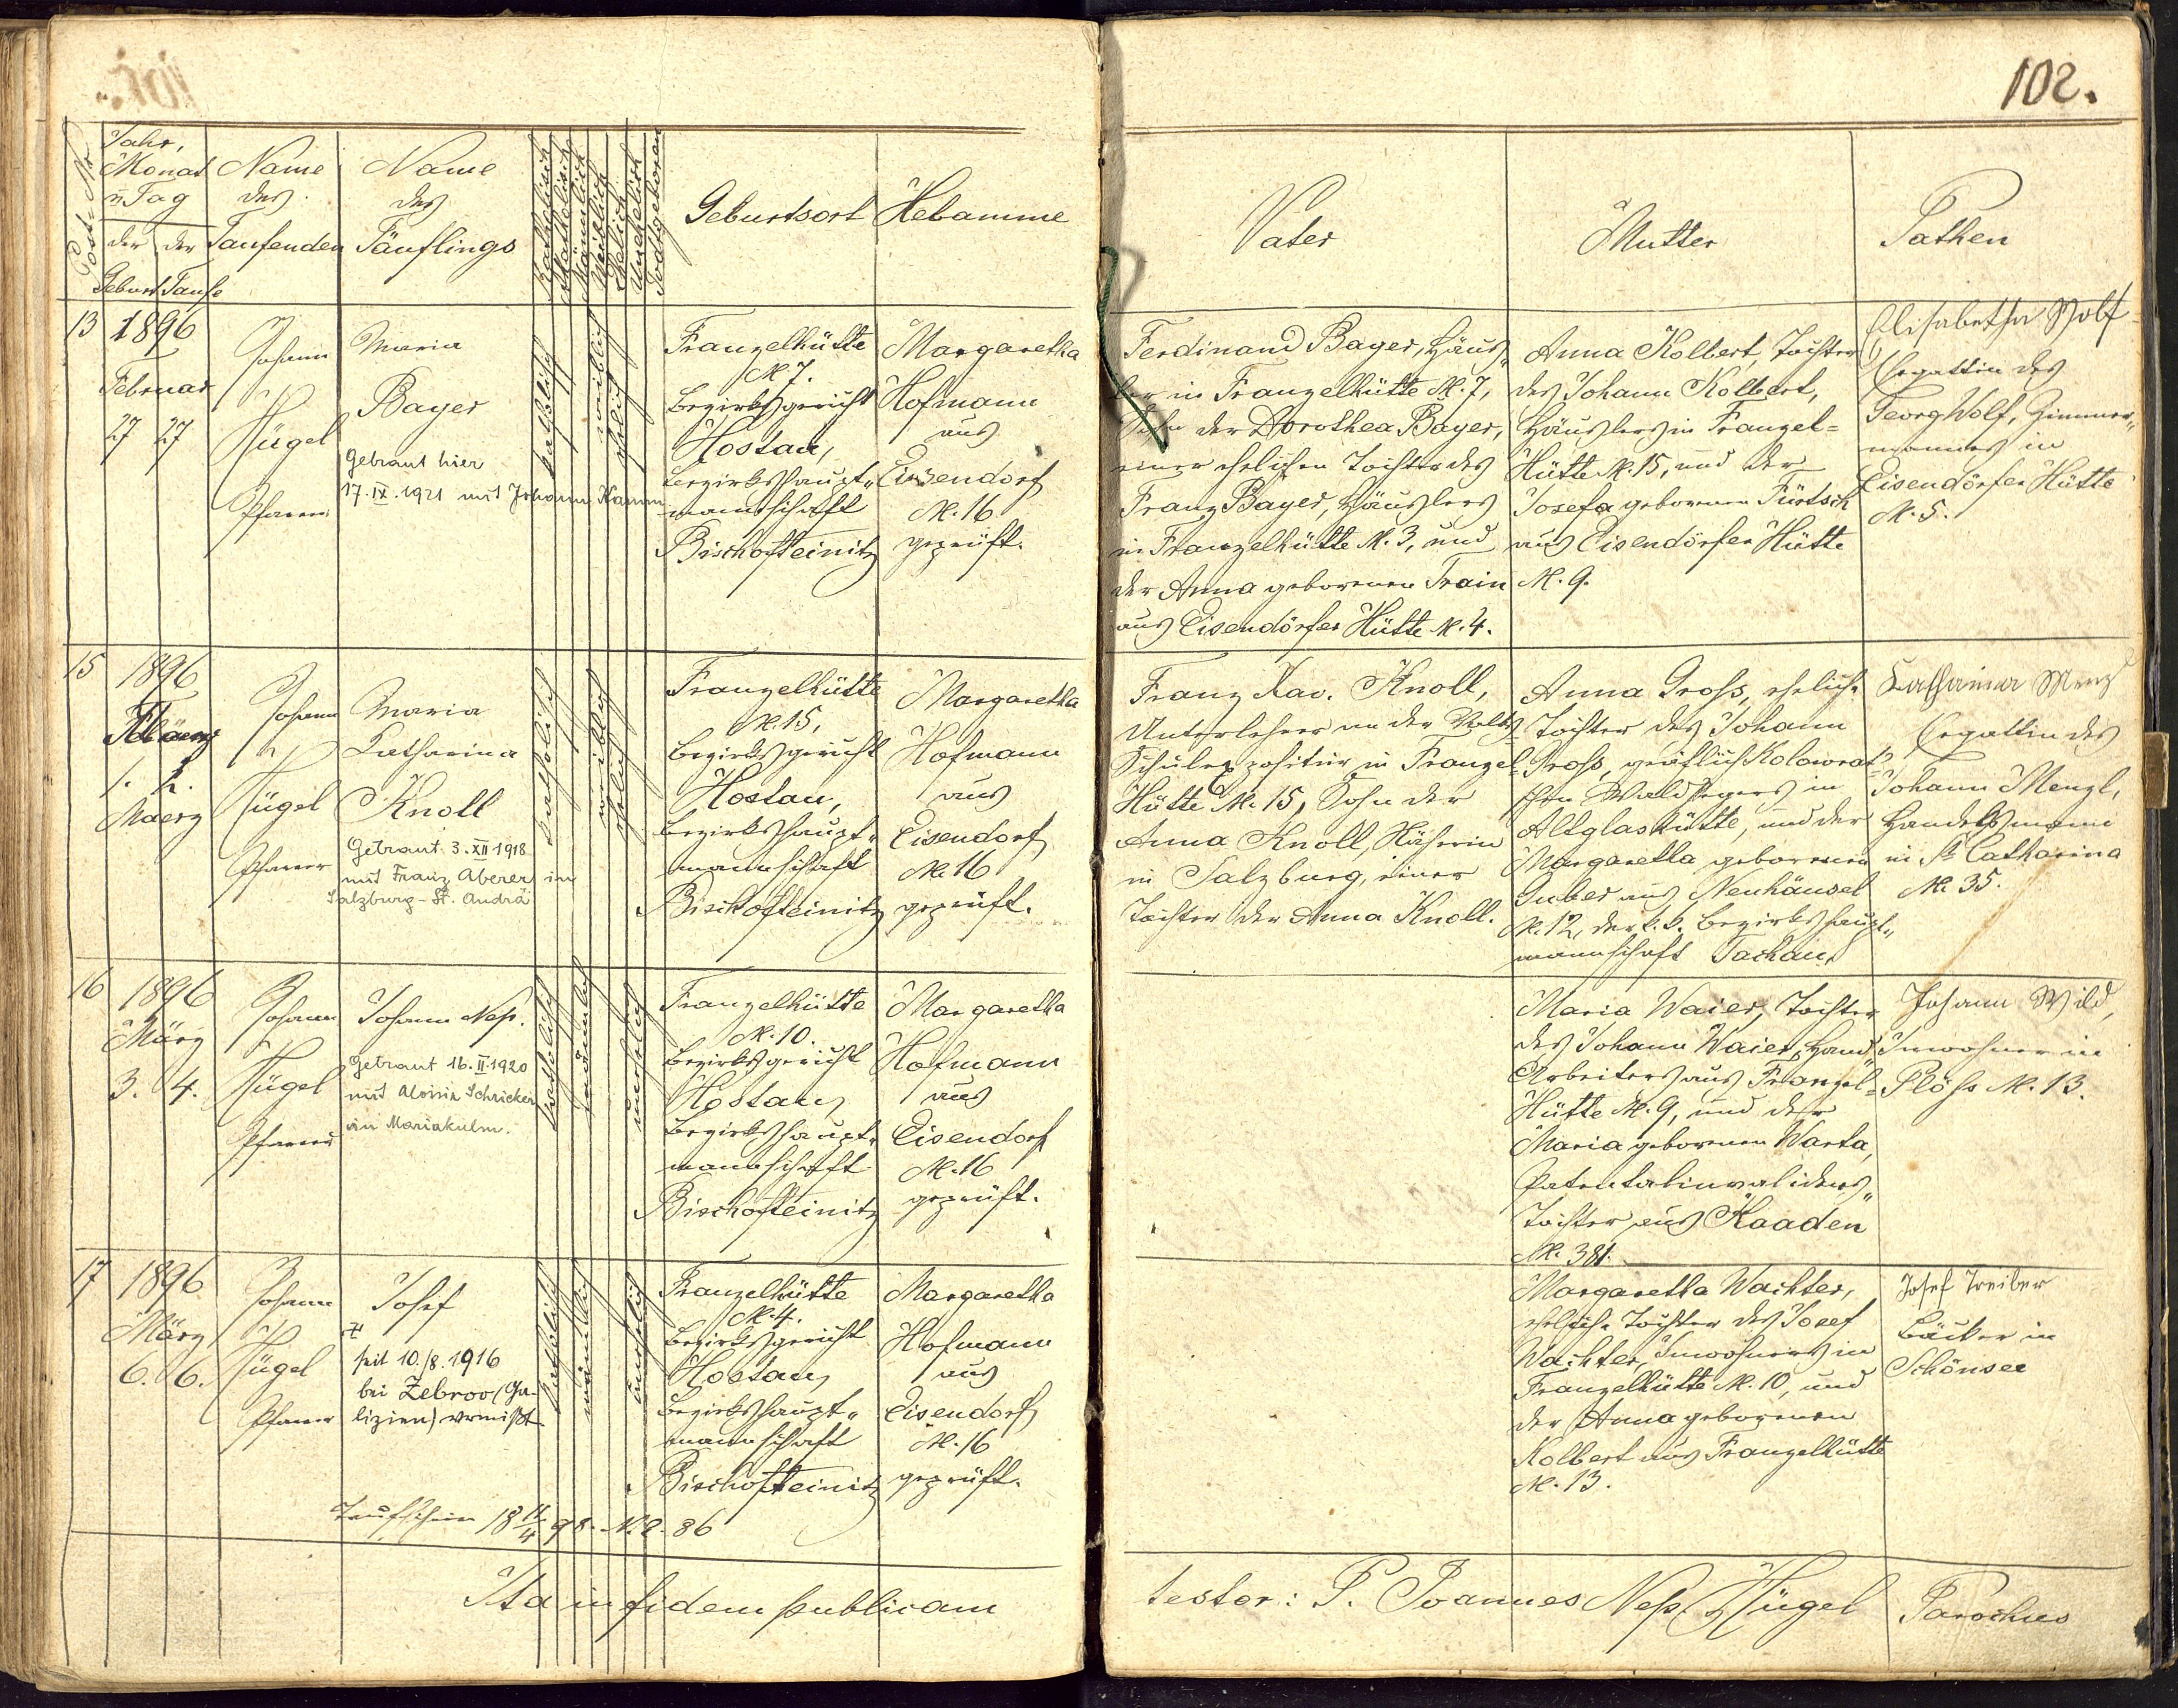 102.
Post-Nr
Jahr,
Monat
u Tag
der der
Geburt Taufe
Name
des
Taufenden
Name
des
Täuflings
Katholisch
Akatholisch
Männlich
Weiblich
Ehelich
Unehelich
Todtgeboren
Geburtsort
Hebamme
Vater
Mutter
Pathen
13
1896
Februar
27 27
Johann
Hügel
Pfarrer
Maria
Bayer
Getraut hier
17.IX.1921 mit Johann Kamm
katholisch
weiblich
ehelich
Franzelhütte
N. 7.
Bezirksgericht
Hostau,
Bezirkshaupt„
mannschaft
Bischofteinitz
Margaretha
Hofmann
aus
Eisendorf
N. 16
geprüft.
Ferdinand Bayer, Häus„
ler in Franzelhütte N. 7,
Sohn der Dorothea Bayer,
einer ehelichen Tochter des
Franz Bayer, Häuslers
in Franzelhütte N. 3, und
der Anna geborenen Train
aus Eisendörfer Hütte N. 4.
Anna Kolbert, Tochter
des Johann Kolbert,
Häuslers in Franzel=
Hütte N. 15, und der
Josefa geborenen Fürtsch
aus Eisendörfer Hütte
N. 9.
Elisabetha Wolf
Ehegattin des
Georg Wolf, Zimmer„
mannes in
Eisendörfer Hütte
N. 5.
15
1896
März
1. 2.
Maerz
Johann
Hügel
Pfarrer
Maria
Katharina
Knoll
Getraut 3.XII 1918
mit Franz Aberer in
Salzburg - St. Andrä
katholisch
weiblich
ehelich
Franzelhütte
N. 15,
Bezirksgericht
Hostau,
Bezirkshaupt„
mannschaft
Bischofteinitz
Margaretha
Hofmann
aus
Eisendorf
N. 16
geprüft.
Franz Xav. Knoll,
Unterlehrer an der Volks=
Schulexpositur in Franzel=
Hütte N. 15, Sohn der
Anna Knoll, Näherin
in Salzburg, einer
Tochter der Anna Knoll.
Anna Gross, eheliche
Tochter des Johann
Gross, gräflich Kolowrat=
schen Waldhegers in
Altglashütte, und der
Margaretha geborenen
Guber aus Neuhäusel
N. 12, der k.k. Bezirkshaupt„
mannschaft Tachau.
Katharina Menzl
Ehegattin des
Johann Menzl,
Handelsmann
in St Catharina
N. 35.
16
1896
März
3. 4.
Johann
Hügel
Pfarrer
Johann Nep.
Getraut 16.II.1920
mit Aloisia Schricker
in Mariakulm.
katholisch
männlich
unehelich
Franzelhütte
N. 10.
Bezirksgericht
Hostau,
Bezirkshaupt„
mannschaft
Bischofteinitz
Margaretha
Hofmann
aus
Eisendorf
N. 16
geprüft.
Maria Waier, Tochter
des Johann Waier, Hand„
Arbeiters aus Franzel=
Hütte N. 9, und der
Maria geborenen Warta,
Patentalinvalidens„
Tochter aus Kaaden
N. 381.
Johann Wild,
Inwohner in
Plöss N. 13.
17
1896
März
6. 6.
Johann
Hügel
Pfarrer
Josef
seit 10./8.1916
bei Zebrov (Ga-
lizien) vermißt
katholisch
männlich
unehelich
Franzelhütte
N. 4.
Bezirksgericht
Hostau,
Bezirkshaupt„
mannschaft
Bischofteinitz
Margaretha
Hofmann
aus
Eisendorf
N. 16
geprüft.
Margaretha Wachter,
eheliche Tochter des Josef
Wachter, Inwohners in
Franzelhütte N. 10, und
der Anna geborenen
Kolbert aus Franzelhütte
N. 13.
Josef Treiber
Bäcker in
Schönsee
Taufschein 18 11/4 98. N. 2. 86
Ita in fidem publicam
testor: P. Joannes Nep. Hügel Parochus